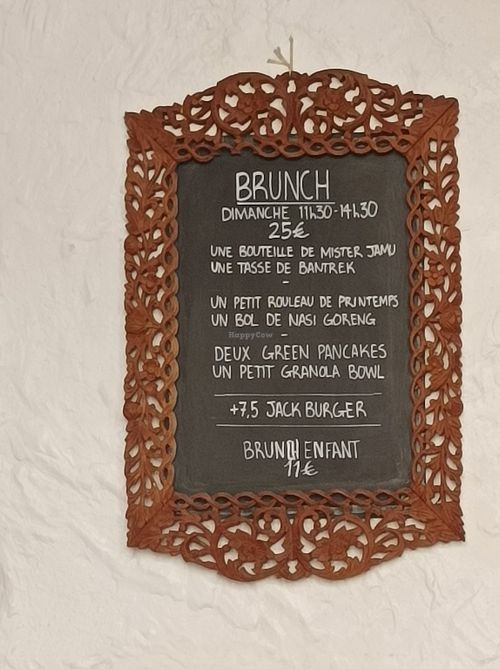 BRUNCH
DIMANCHE 11h30-14h30
25€
UNE BOUTEILLE DE MISTER JAMU
UNE TASSE DE BANTREK
-
UN PETIT ROULEAU DE PRINTEMPS
UN BOL DE NASI GORENG
-
HappyCow
DEUX GREEN PANCAKES
UN PETIT GRANOLA BOWL
+7,5 JACK BURGER
BRUNCH ENFANT
11€